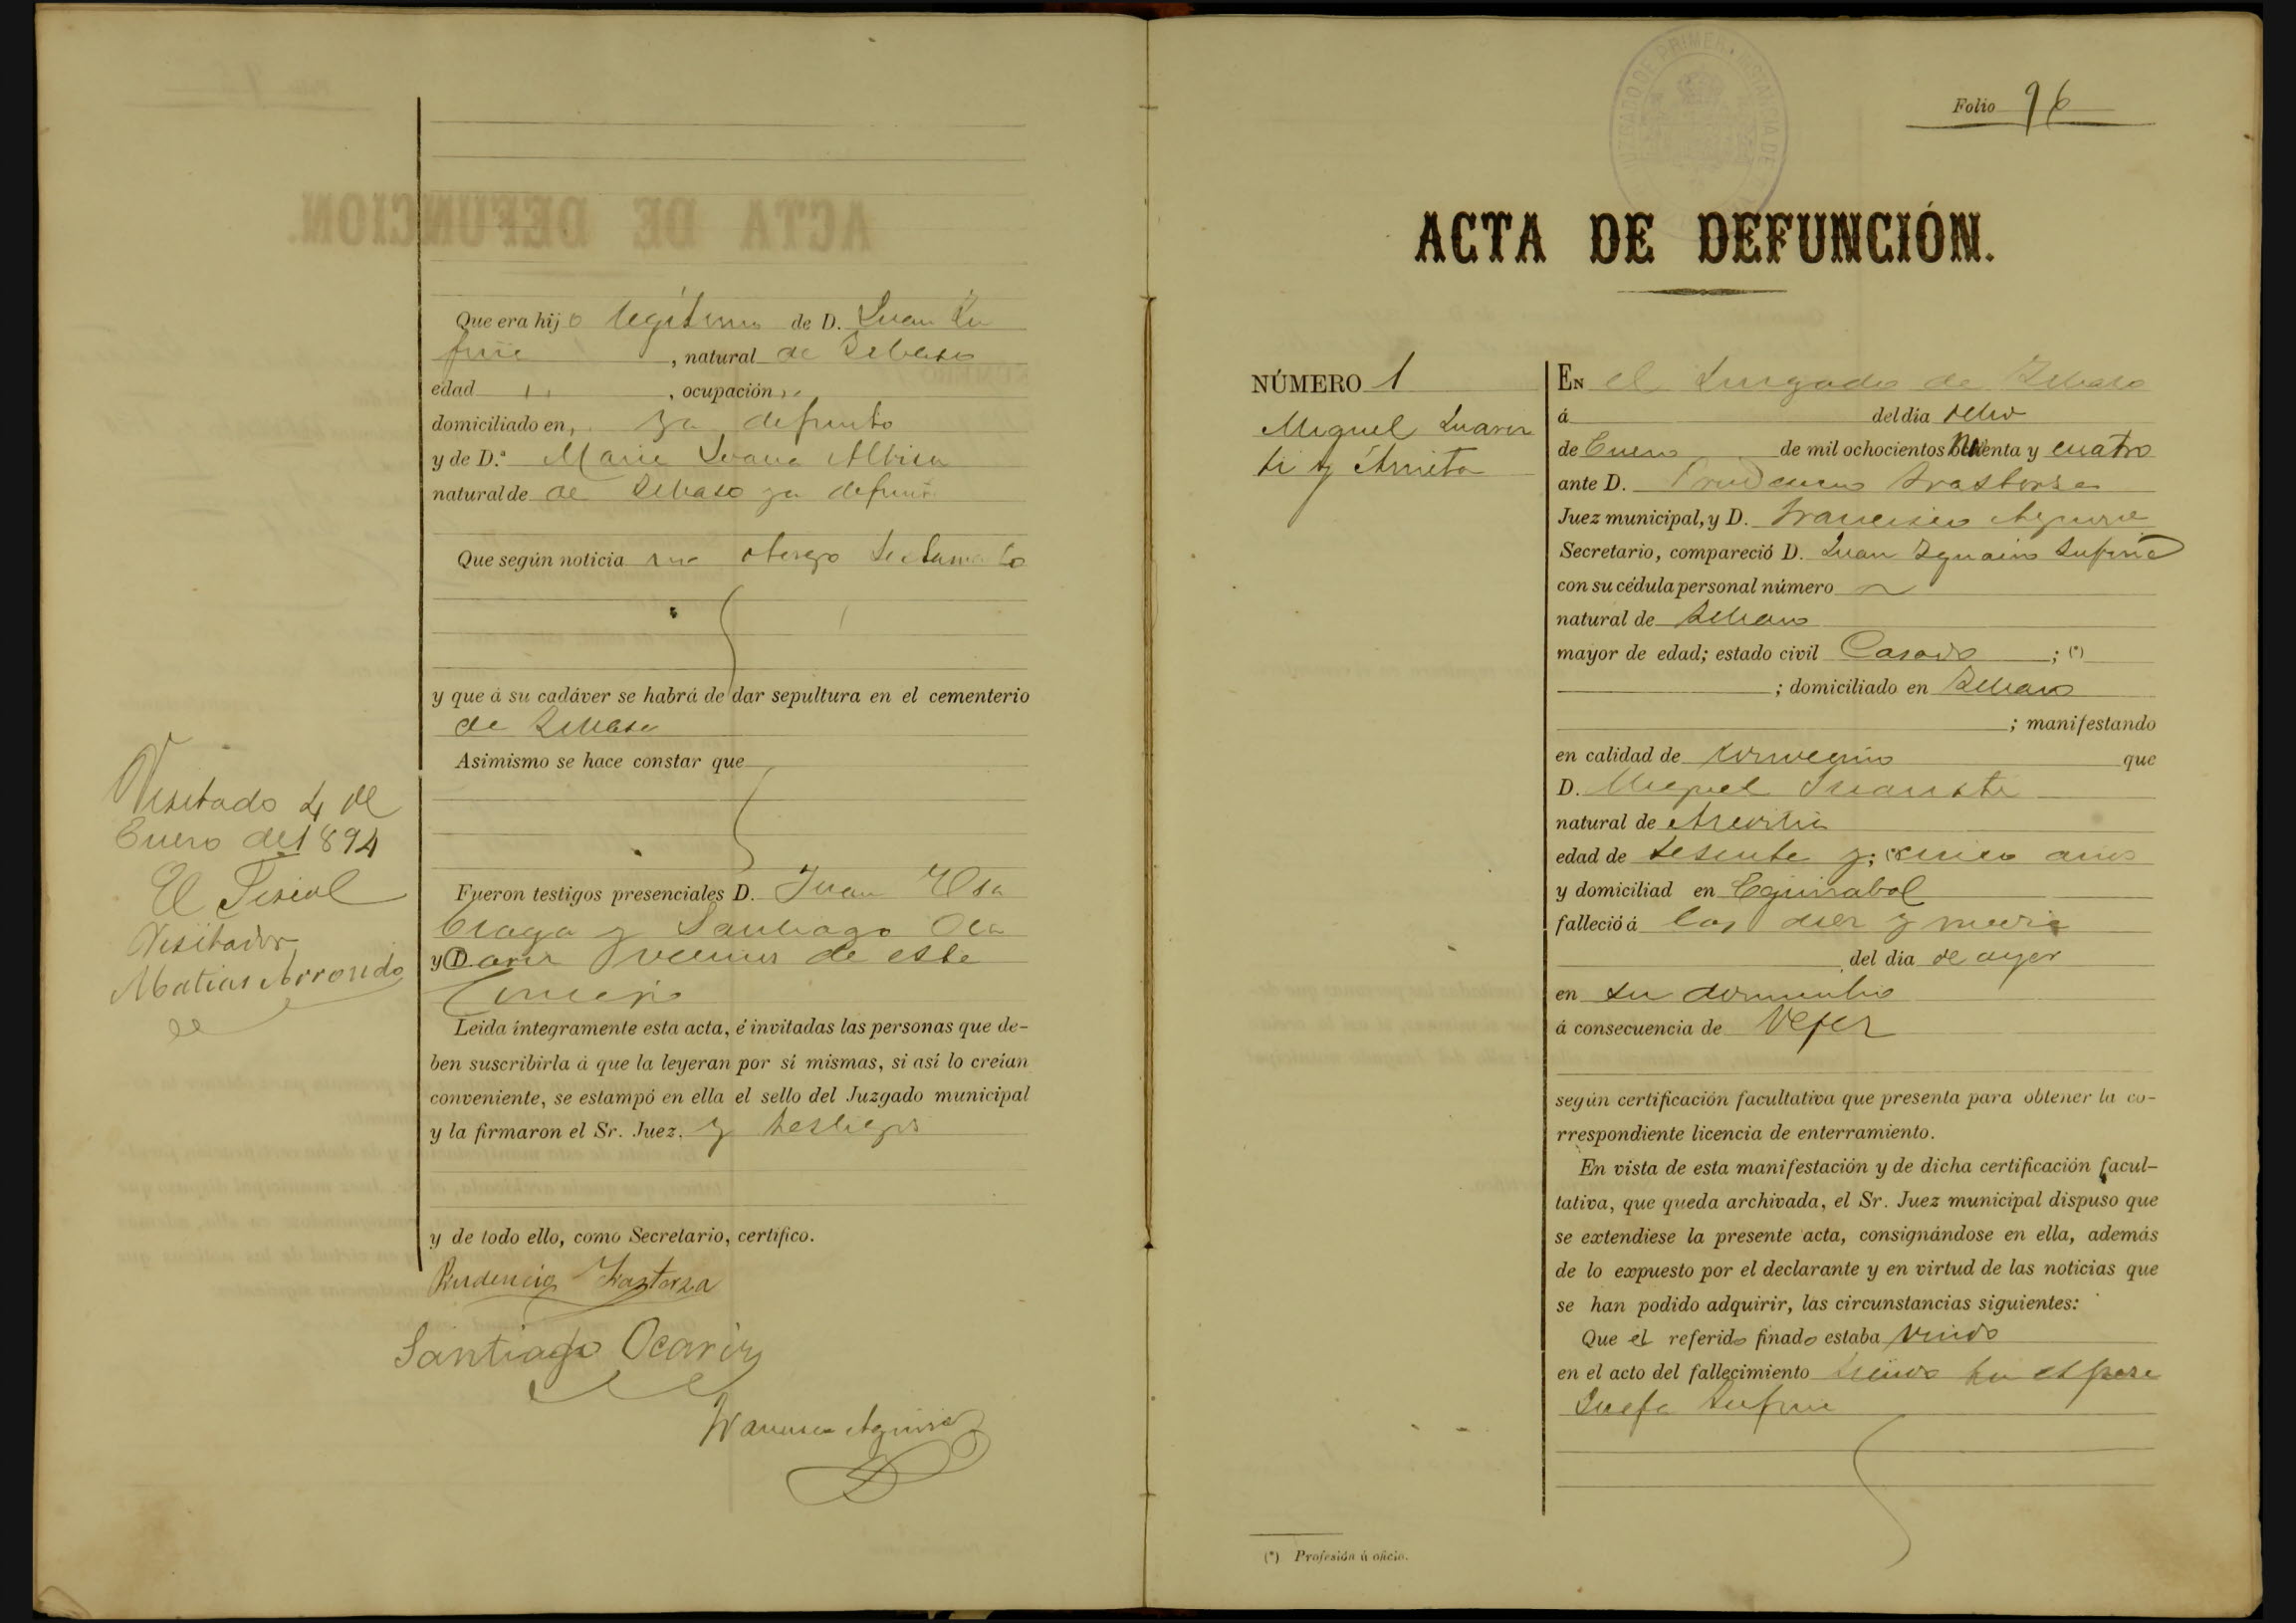 Que era hijo legítimo de D. Juan Lu
frie, natural de Zerbaso
edad , ocupación
domiciliado en, ya defunto
y de D.ª Maria Albisu
natural de de Zerbaso ya
Que según noticia no otorgo testamento
y que á su cadáver se habrá de dar sepultura en el cementerio
de
Asimismo se hace constar que
Visitado 4 de
Enero de 1894
El Fiscal
Visitador
Matias Arrondo
Fueron testigos presenciales D. Juan
y Santiago Oca
y D. ariz vecinos de este
Concejo
Leida íntegramente esta acta, é invitadas las personas que de-
ben suscribirla á que la leyeran por sí mismas, si así lo creían
conveniente, se estampó en ella el sello del Juzgado municipal
y la firmaron el Sr. Juez. y testigos
y de todo ello, como Secretario, certifico.
Prudencio
Santiago Ocariz
Francisco Aguirre
Folio 96
ACTA DE DEFUNCIÓN.
NÚMERO 1
Miguel
ti y Arrieta
EN el Juzgado de
á del día ocho
de Enero de mil ochocientos noventa y cuatro
ante D. Prudencio
Juez municipal, y D. Francisco Aguirre
Secretario, compareció D. Juan Ignacio
con su cédula personal número
natural de
mayor de edad; estado civil Casado ; (*)
; domiciliado en
; manifestando
en calidad de convecino que
D. Miguel
natural de
edad de sesenta y; (*) cinco años
y domiciliad en Eguinabal
falleció á las diez y media
del día de ayer
en su domicilio
á consecuencia de Vejez
según certificación facultativa que presenta para obtener la co-
rrespondiente licencia de enterramiento.
En vista de esta manifestación y de dicha certificación facul-
tativa, que queda archivada, el Sr. Juez municipal dispuso que
se extendiese la presente acta, consignándose en ella, además
de lo expuesto por el declarante y en virtud de las noticias que
se han podido adquirir, las circunstancias siguientes:
Que el referido finado estaba viudo
en el acto del fallecimiento siendo su esposa
Josefa
(*) Profesión ú oficio.